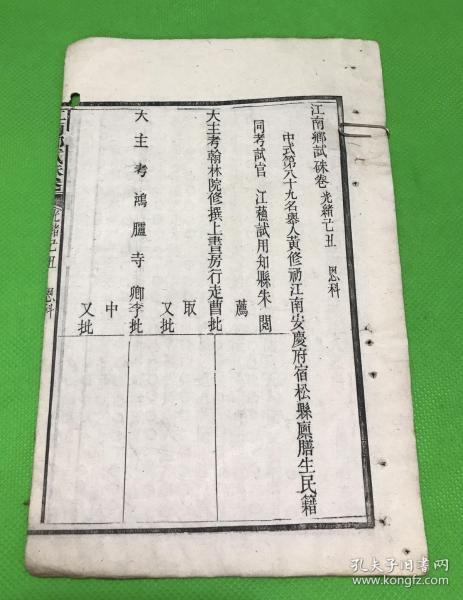 江南鄉試硃卷 光緒己丑 恩科
中式第八十九名舉人黃修礽江南安慶府宿松縣廩膳生民籍
同考試官 江蘇試用知縣朱 閱
薦
大主考翰林院修撰上書房行走曹批
取
又批
大主考鴻臚寺卿李批
中
又批
江南鄉試硃卷 光緒己丑 恩科
孔夫子旧书网
www.kongfz.com